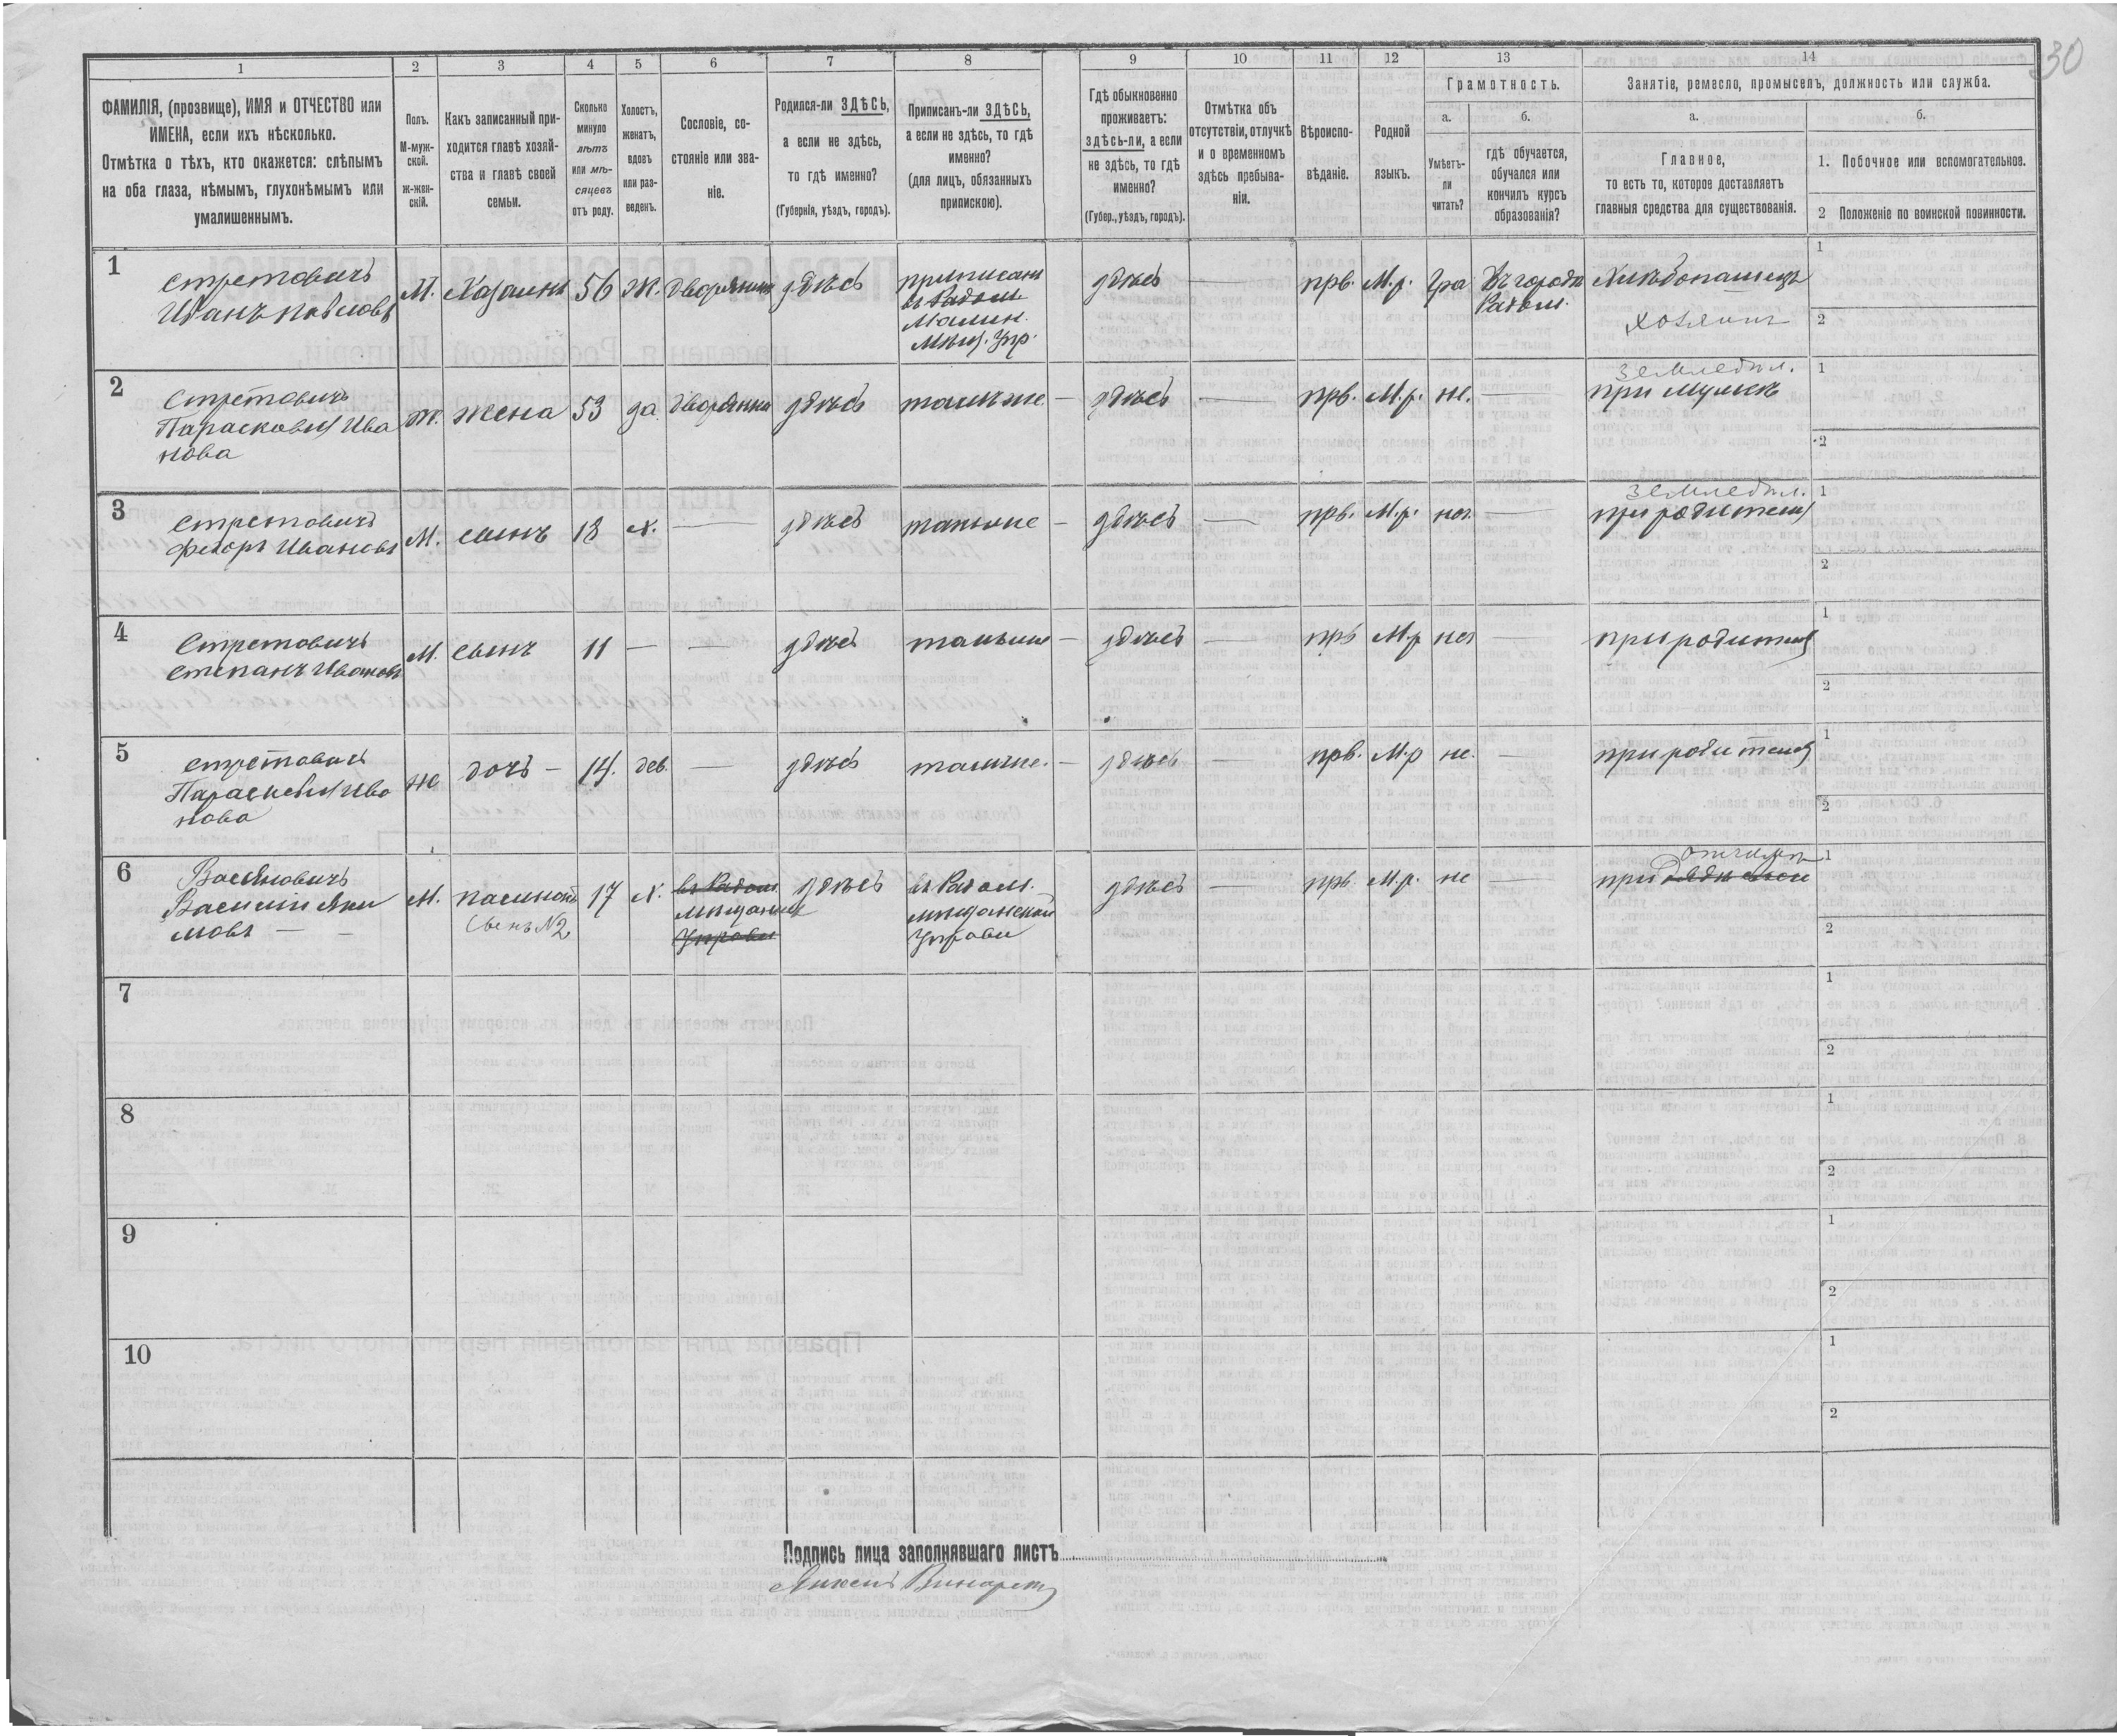 30
1
2
3
4
5
6
7
8
9
10
11
12
13
14
ФАМИЛІЯ, (прозвище), ИМЯ и ОТЧЕСТВО или
ИМЕНА, если ихъ нѣсколько.
Отмѣтка о тѣхъ, кто окажется: слѣпымъ
на оба глаза, нѣмымъ, глухонѣмымъ или
умалишеннымъ.
Полъ.
М-муж-
ской.
ж-жен-
скій.
Какъ записанный при-
ходится главѣ хозяй-
ства и главѣ своей
семьи.
Сколько
минуло
лѣтъ
или мѣ-
сяцевъ
отъ роду.
Холостъ,
женатъ,
вдовъ
или раз-
веденъ.
Сословіе, со-
стояніе или зва-
ніе.
Родился-ли ЗДѢСЬ,
а если не здѣсь,
то гдѣ именно?
(Губернія, уѣздъ, городъ).
Приписанъ-ли ЗДѢСЬ,
а если не здѣсь, то гдѣ
именно?
(для лицъ, обязанныхъ
припискою).
Гдѣ обыкновенно
проживаетъ:
здѣсь-ли, а если
не здѣсь, то гдѣ
именно?
(Губер., уѣздъ, городъ).
Отмѣтка объ
отсутствіи, отлучкѣ
и о временномъ
здѣсь пребыва-
ніи.
Вѣроиспо-
вѣданіе.
Родной
языкъ.
Грамотность.
а.
Умѣетъ-
ли
читать?
б.
гдѣ обучается,
обучался или
кончилъ курсъ
образованія?
Занятіе, ремесло, промыселъ, должность или служба.
а.
Главное,
то есть то, которое доставляетъ
главныя средства для существованія.
б.
1. Побочное или вспомогательное.
2 Положеніе по воинской повинности.
1
Стретовичъ
Иванъ Павловъ
М.
Хазаинъ
56
Ж.
Дворянинъ
здѣсь
приписанъ
въ Радом
Малин.
Мѣщ. Упр.
здѣсь
—
прв.
М.р.
Гра
Въ городѣ
Радом.
Хлѣбопашецъ
хозяинъ
1
2
2
Стретовичъ
Парасковія Ива
нова
Ж.
жена
53
да
Дворянка
здѣсь
такъже —
здѣсь
—
прв.
М.р.
не.
—
земледѣл.
при мужѣ
1
2
3
Стретовичъ
Федоръ Ивановъ
М.
сынъ
18
х.
—
здѣсь
такъже —
здѣсь
—
прв.
М.р.
—
земледѣл.
при родителя
1
2
4
Стретовичъ
Степанъ Ивановъ
М.
сынъ
11
—
—
здѣсь
такъже —
здѣсь
—
прв
М.р
—
при родителя
1
2
5
Стретовичъ
Параскевія Ива
нова
Ж
дочь —
14.
дев.
—
здѣсь
такъже. —
здѣсь
—
прв.
М.р
не.
—
при родителя
1
2
6
Василии Яки
мовъ — —
М.
пасинокъ
Сынъ №2
17
х.
въ Радом.
мѣщанин
Управи
здѣсь
въ Радом.
мѣщанской
Управи
здѣсь
—
прв.
М.р.
не
—
отчимѣ
при
1
2
7
1
2
8
1
2
9
1
2
10
1
2
Подпись лица заполнявшаго листъ